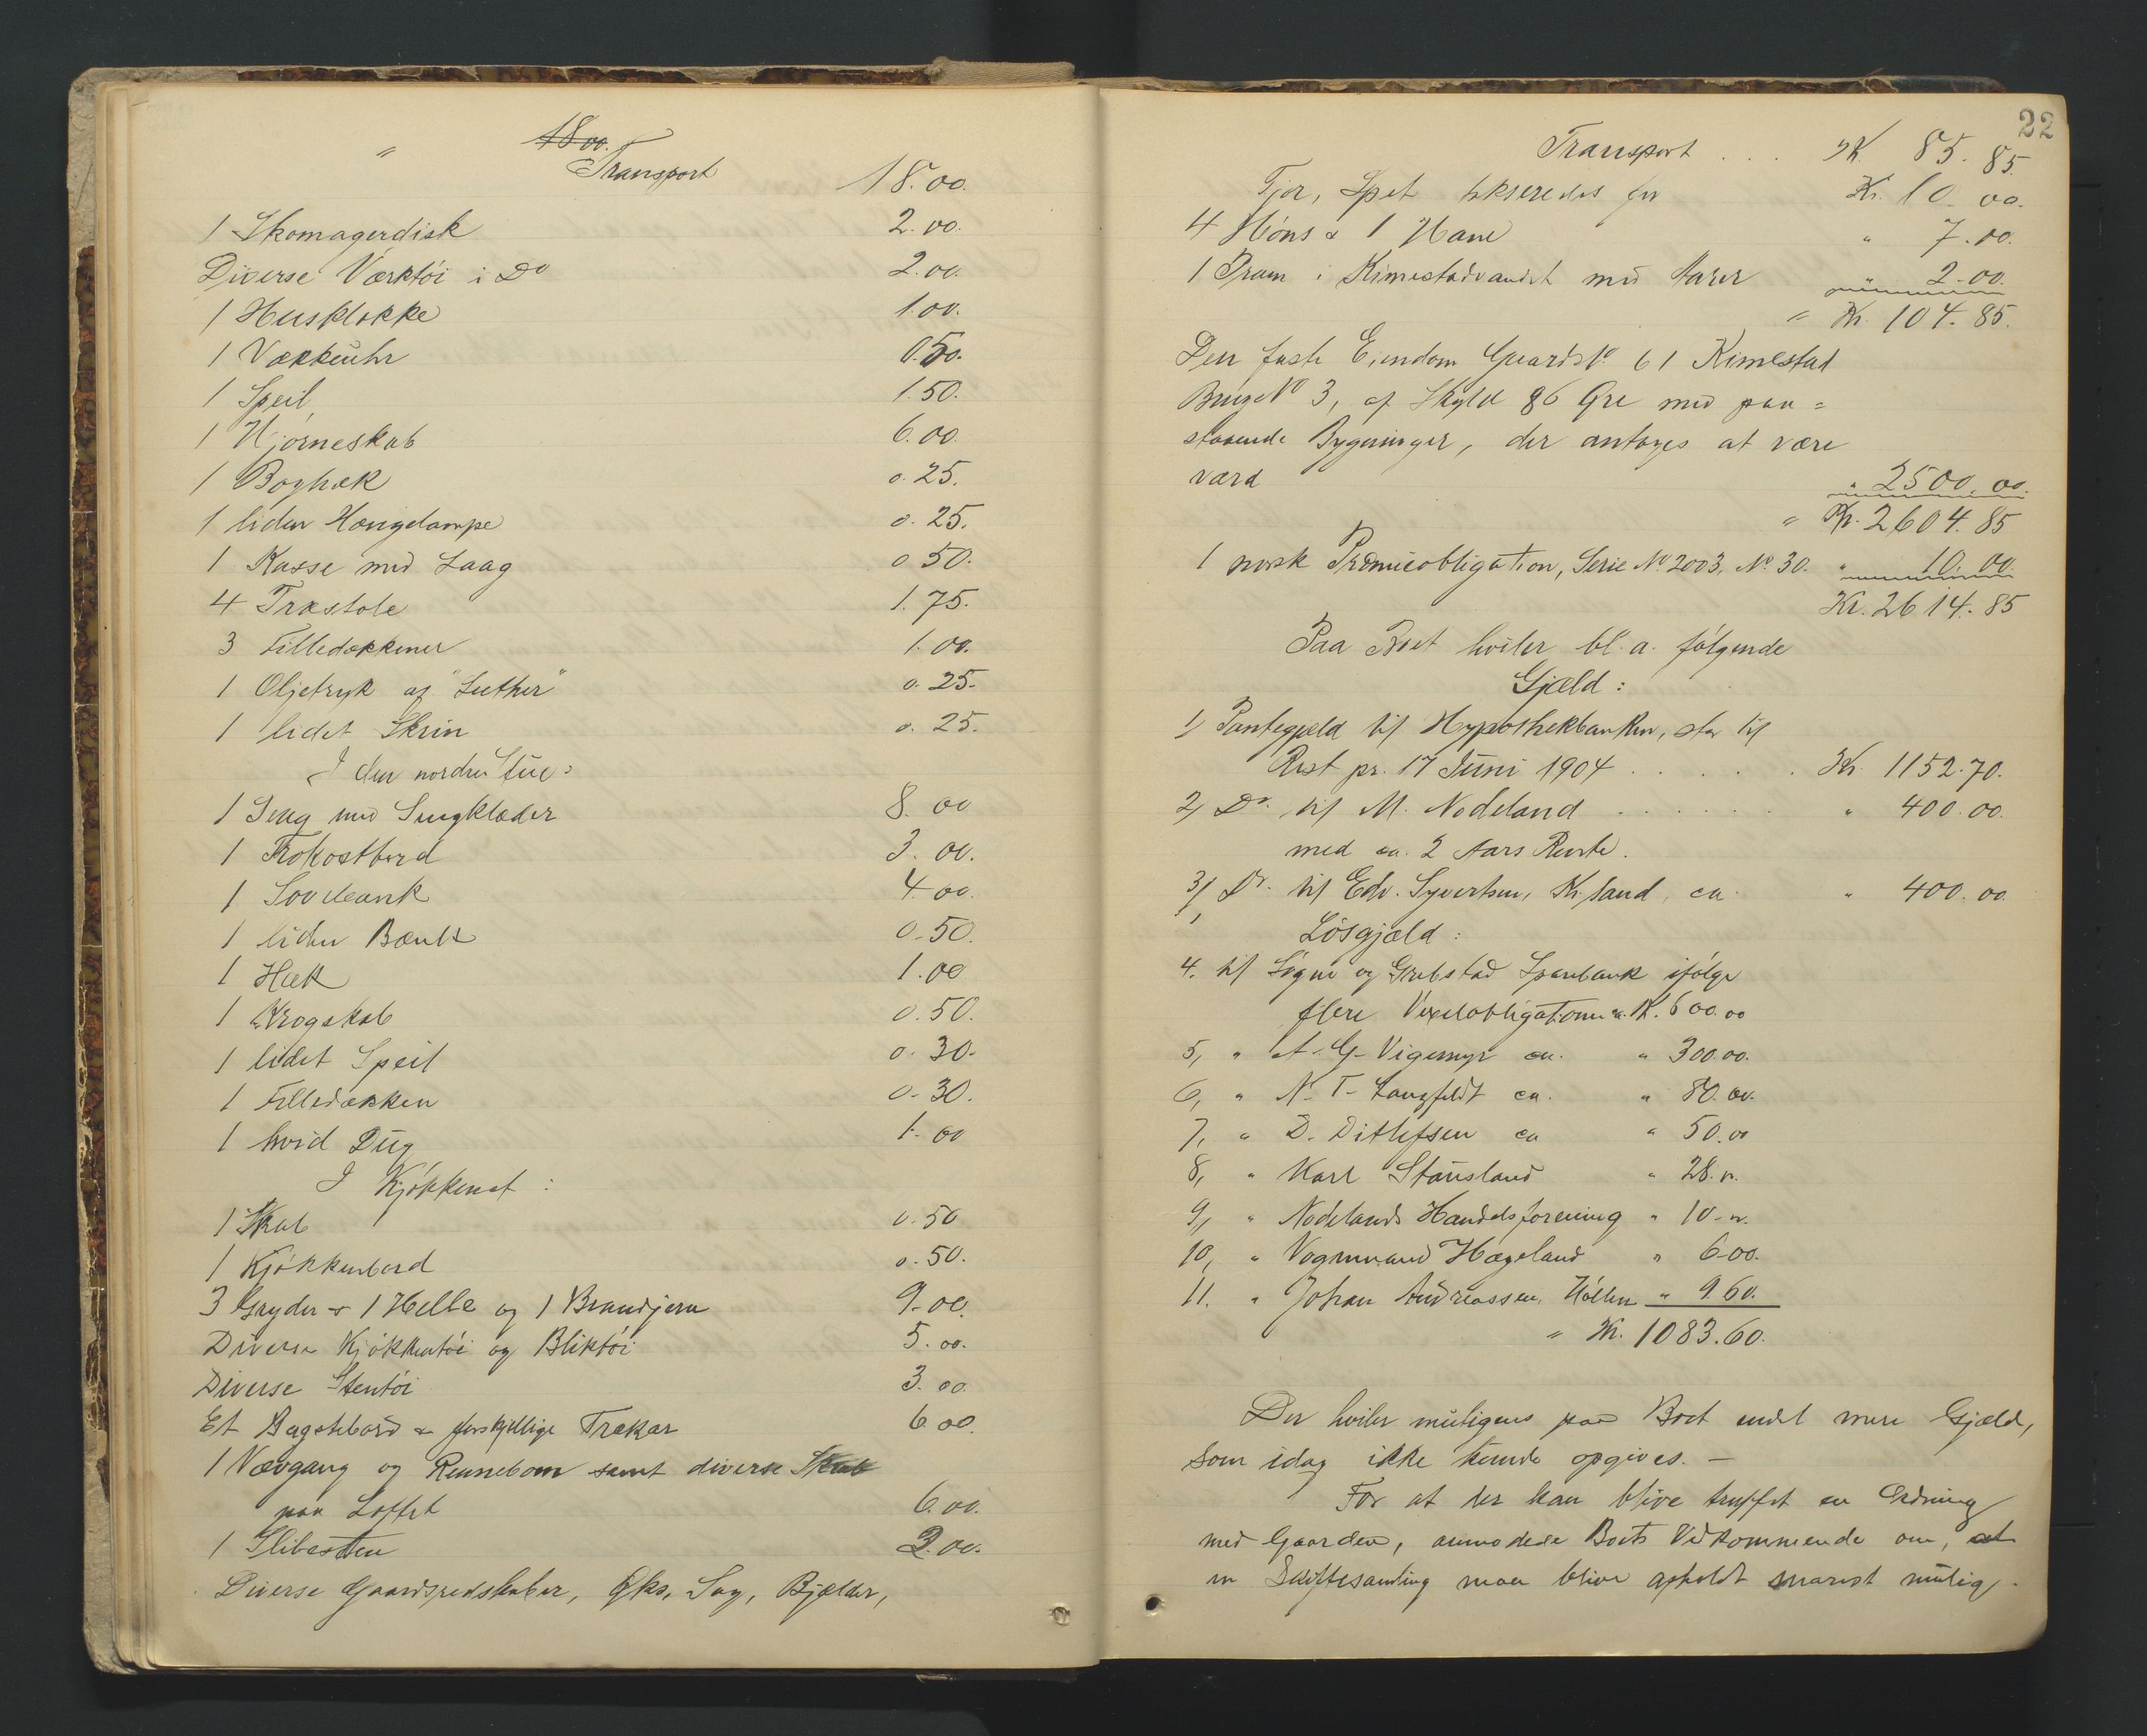 " 18.00.
Transport 18.00.
1 Skomagerdisk 2.00.
Diverse Værktöi i Do 2.00.
1 Husklokke 1.00.
1 Vækkeuhr 0.50.
1 Speil 1.50.
1 Hjörneskab 6.00.
1 Boghæk 0.25.
1 liden Hængelampe 0.25.
1 Kasse med Laag 0.50.
4 Træstole 1.75.
3 Filledækkener 1.00.
1 Oljetryk af "Luther" 0.25.
1 lidet Skrin 0.25.
I den nordre Stue:
1 Seng med Sengklæder 8.00
1 Frokostbord 3.00.
1 Sovebænk 4.00.
1 liden Bænk 0.50.
1 Hæk 1.00
1 Krogskab 0.50.
1 lidet Speil 0.30.
1 Filledækken 0.30.
1 hvid Dug 1.00
I Kjökkenet:
1 Skab 0.50
1 Kjökkenbord 0.50.
3 Gryder & 1 Helle og 1 Brandjern 9.00.
Diverse Kjökkentöi og Bliktöi 5.00.
Diverse Stentöi 3.00.
Et Bagstebord & forskjellige Trækar 6.00.
1 Vævgang og Rennebom samt diverse Skrab
paa Loftet 6.00.
1 Slibesten 2.00.
Diverse Gaardsredskaber, Öks, Sag, Bjælder,
22
Transport . . . Kr. 85.85.
Tjor, Spet takseredes for Kr. 10.00.
4 Höns & 1 Hane " 7.00.
1 Pram i Kimestadvandet med Aarer " 2.00.
" Kr. 104.85.
Den faste Eiendom Gaards No 61 Kimestad
Brugs No 3, af Skyld 86 Öre med paa=
staaende Bygninger, der antages at være
værd " 2500.00.
" Kr. 2604.85
1 norsk Præmieobligation, Serie No 2003, No 30. " 10.00.
Kr. 2614.85
Paa Boet hviler bl.a. fölgende
Gjæld:
1) Pantegjæld til Hypothekbanken, stor til
Rest pr. 17 Juni 1904 . . . . . . Kr. 1152.70.
2) Do. til M. Nodeland . . . . . . " 400.00.
med ca. 2 Aars Rente.
3) Do. til Edv. Syvertsen, Kr.sand, ca. " 400.00
Lösgjæld:
4. til Sögne og Greibstad Sparebank ifölge
flere Vexelobligationer ca. Kr. 600.00
5, " A. G. Vigemyr ca. " 300.00.
6, " N. T. Langfeldt ca. " 80.00.
7, " D. Ditlefsen ca " 50.00
8, " Karl Stausland " 28.".
9, " Nodelands Handelsforening " 10.".
10, " Vognmand Hægeland " 6.00.
11. " Johan Andreassen, Höllen " 9.60.
" Kr. 1083.60.
Der hviler muligens paa Boet endel mere Gjæld,
som idag ikke kunde opgives. —
For at der kan blive truffet en Ordning
med Gaarden, anmodede Boets Vedkommende om, at
en Skiftesamling maa blive afholdt snarest mulig.